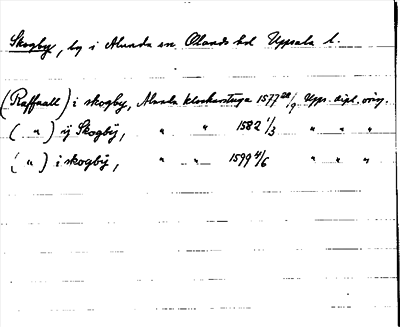 Skogby, by i Alunda sn Olands hd Uppsala l.
(Raffuall) i skogby, Alunda klockarstuga 1577 28/9 Upps. dipl. orig.
( " ) ij Skogbÿ, " " 1582 1/3 " " "
( " ) i skogbÿ, " " 1599 4/6 " " "